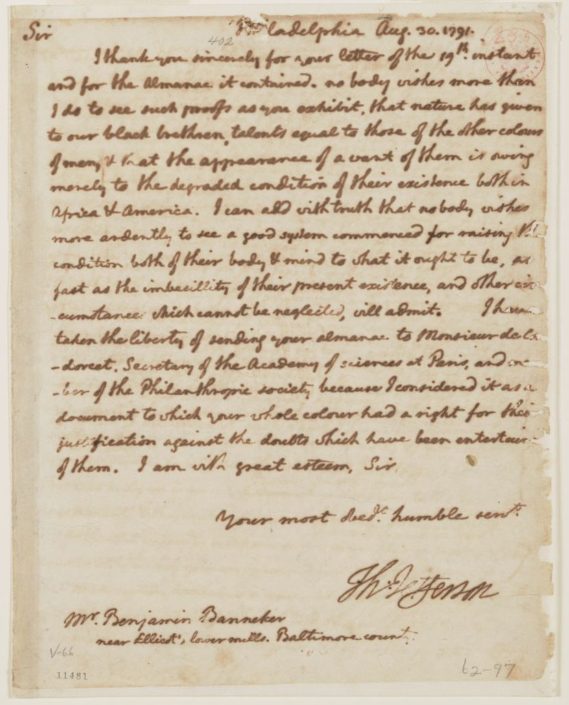 Sir Philadelphia Aug. 30. 1791.
402
I thank you sincerely for your letter of the 19th. instant
and for the Almanac it contained. no body wishes more than
I do to see such proofs as you exhibit, that nature has given
to our black brethren, talents equal to those of the other colours
of men, & that the appearance of a want of them is owing
merely to the degraded condition of their existence both in
Africa & America. I can add with truth that no body wishes
more ardently to see a good system commenced for raising the
condition both of their body & mind to what it ought to be, as
fast as the imbecillity of their present existence, and other cir
-cumstances which cannot be neglected, will admit. I have
taken the liberty of sending your almanac to Monsieur de
-dorcet, Secretary of the Academy of sciences at Paris, and
-ber of the Philanthropic society because I considered it as a
document to which your whole colour had a right for their
justification against the doubts which have been entertain
of them. I am with great esteem, Sir
Your most obedt. humble servt.
Th: Jefferson
Mr. Benjamin Banneker
near Ellicot's, lower mills. Baltimore county.
V-66
11481
62-97